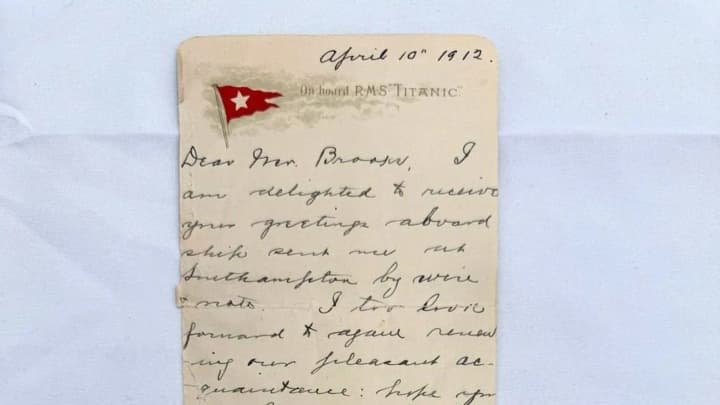 April 10" 1912.
On board RMS "TITANIC"
Dear Mr. Brooks, I
am delighted to receive
your greetings aboard
ship sent me at
Southampton by wire
& note. I too look
forward to again renew
ing our pleasant ac-
quaintance: hope you